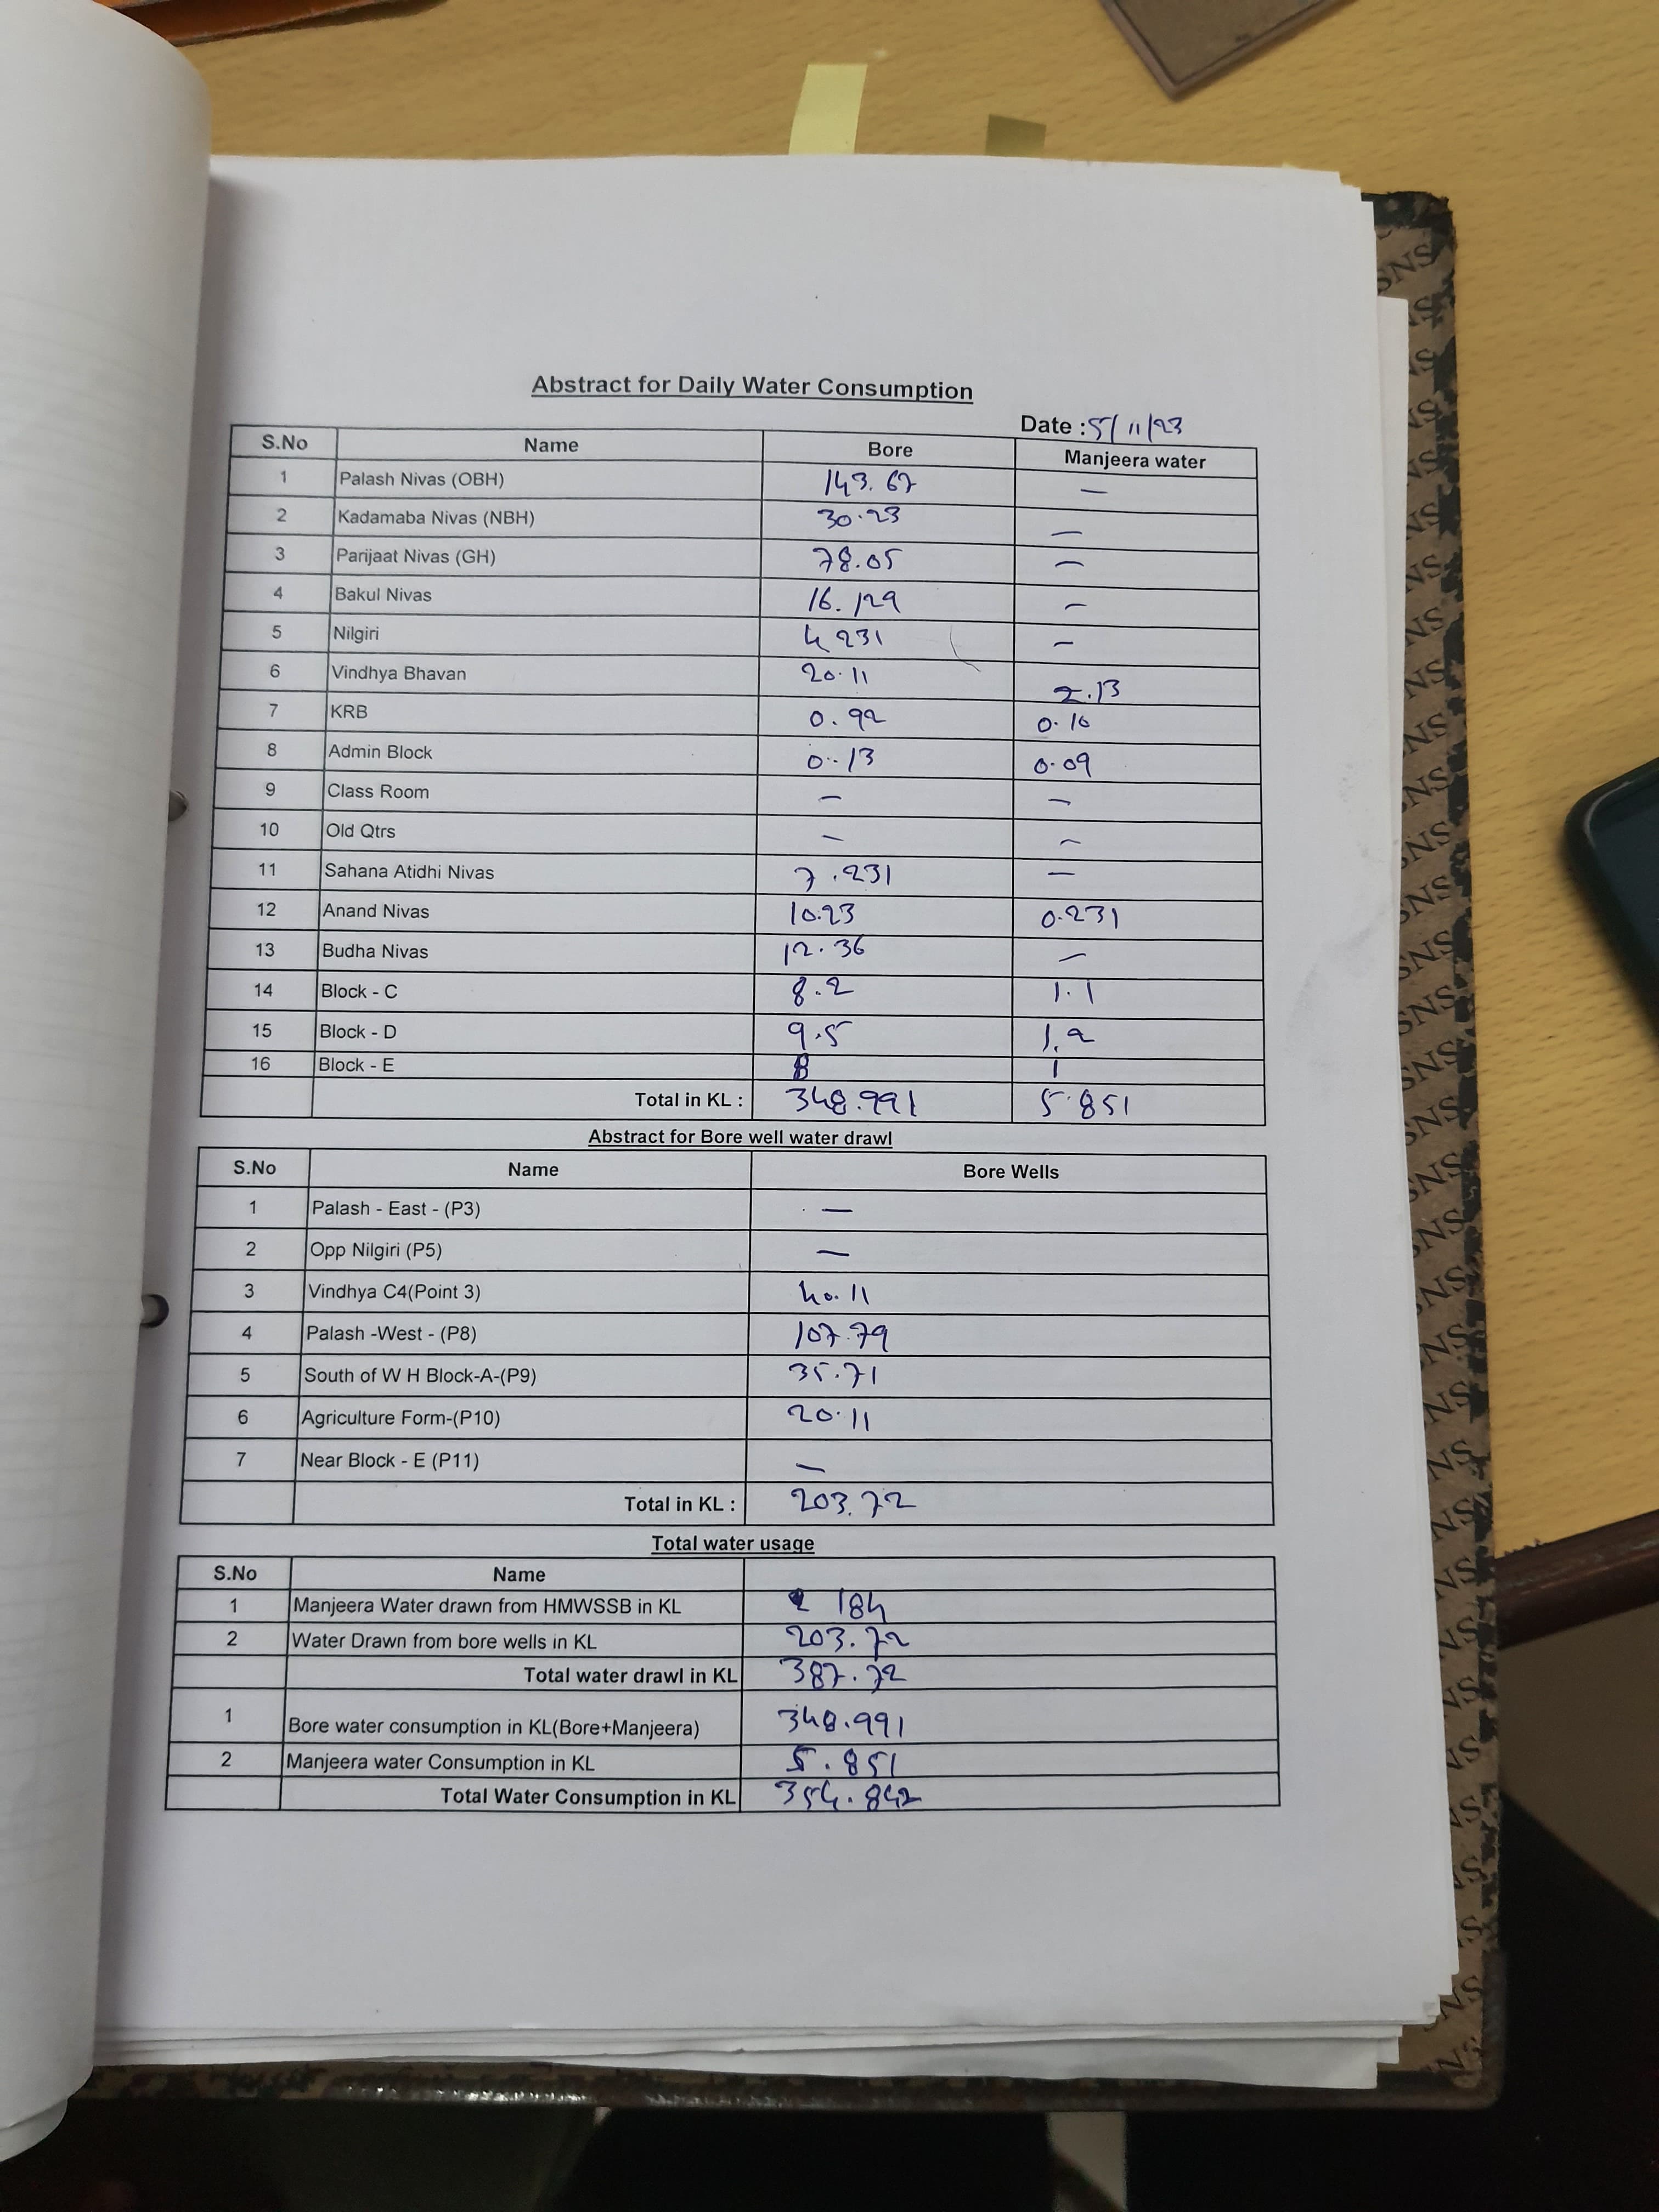 Abstract for Daily Water Consumption
Date : 5/11/23
S.No Name Bore Manjeera water
1 Palash Nivas (OBH) 143.67 —
2 Kadamaba Nivas (NBH) 30.23 —
3 Parijaat Nivas (GH) 78.05 —
4 Bakul Nivas 16.129 —
5 Nilgiri 4.231 —
6 Vindhya Bhavan 20.11 2.13
7 KRB 0.92 0.10
8 Admin Block 0.13 0.09
9 Class Room — —
10 Old Qtrs — —
11 Sahana Atidhi Nivas 7.231 —
12 Anand Nivas 10.23 0.231
13 Budha Nivas 12.36 —
14 Block - C 8.2 1.1
15 Block - D 9.5 1.2
16 Block - E 8 1
Total in KL : 348.991 5.851
Abstract for Bore well water drawl
S.No Name Bore Wells
1 Palash - East - (P3) —
2 Opp Nilgiri (P5) —
3 Vindhya C4(Point 3) 40.11
4 Palash -West - (P8) 107.79
5 South of W H Block-A-(P9) 35.71
6 Agriculture Form-(P10) 20.11
7 Near Block - E (P11) —
Total in KL : 203.72
Total water usage
S.No Name
1 Manjeera Water drawn from HMWSSB in KL 184
2 Water Drawn from bore wells in KL 203.72
Total water drawl in KL 387.72
1 Bore water consumption in KL(Bore+Manjeera) 348.991
2 Manjeera water Consumption in KL 5.851
Total Water Consumption in KL 354.842